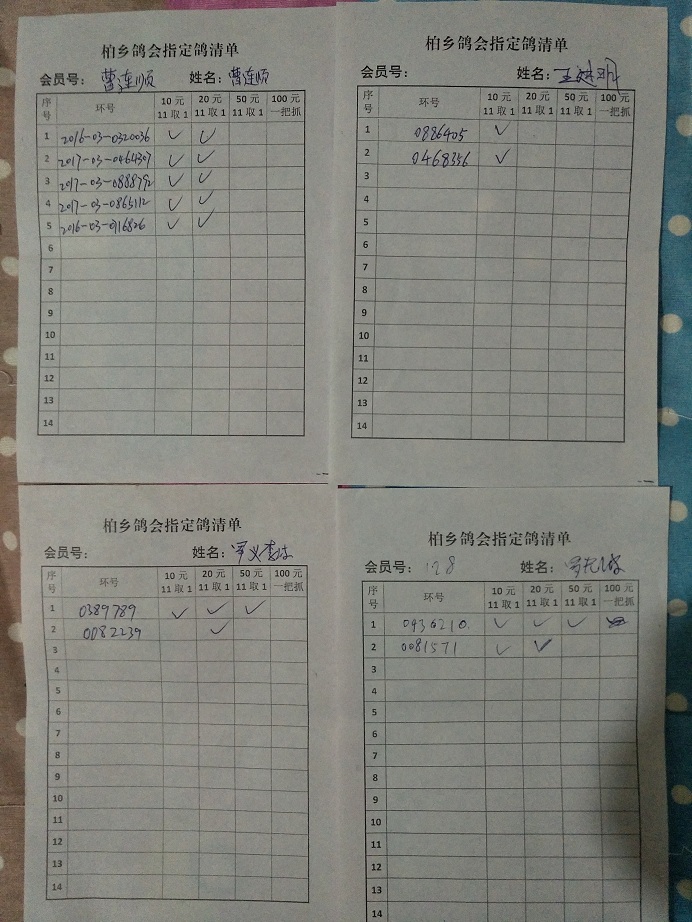 柏乡鸽会指定鸽清单
会员号: 曹连顺 姓名: 曹连顺
序号 环号 10元 11取1 20元 11取1 50元 11取1 100元 一把抓
1 2016-03-0320036 ✓ ✓
2 2017-03-0464307 ✓ ✓
3 2017-03-0888792 ✓ ✓
4 2017-03-0865112 ✓ ✓
5 2016-03-0116826 ✓ ✓
6
7
8
9
10
11
12
13
14
柏乡鸽会指定鸽清单
会员号: 姓名:
序号 环号 10元 11取1 20元 11取1 50元 11取1 100元 一把抓
1 0886405 ✓
2 0468356 ✓
3
4
5
6
7
8
9
10
11
12
13
14
柏乡鸽会指定鸽清单
会员号: 姓名:
序号 环号 10元 11取1 20元 11取1 50元 11取1 100元 一把抓
1 0389789 ✓ ✓ ✓
2 0082239 ✓
3
4
5
6
7
8
9
10
11
12
13
14
柏乡鸽会指定鸽清单
会员号: 128 姓名:
序号 环号 10元 11取1 20元 11取1 50元 11取1 100元 一把抓
1 0436210. ✓ ✓ ✓
2 0081571 ✓ ✓
3
4
5
6
7
8
9
10
11
12
13
14